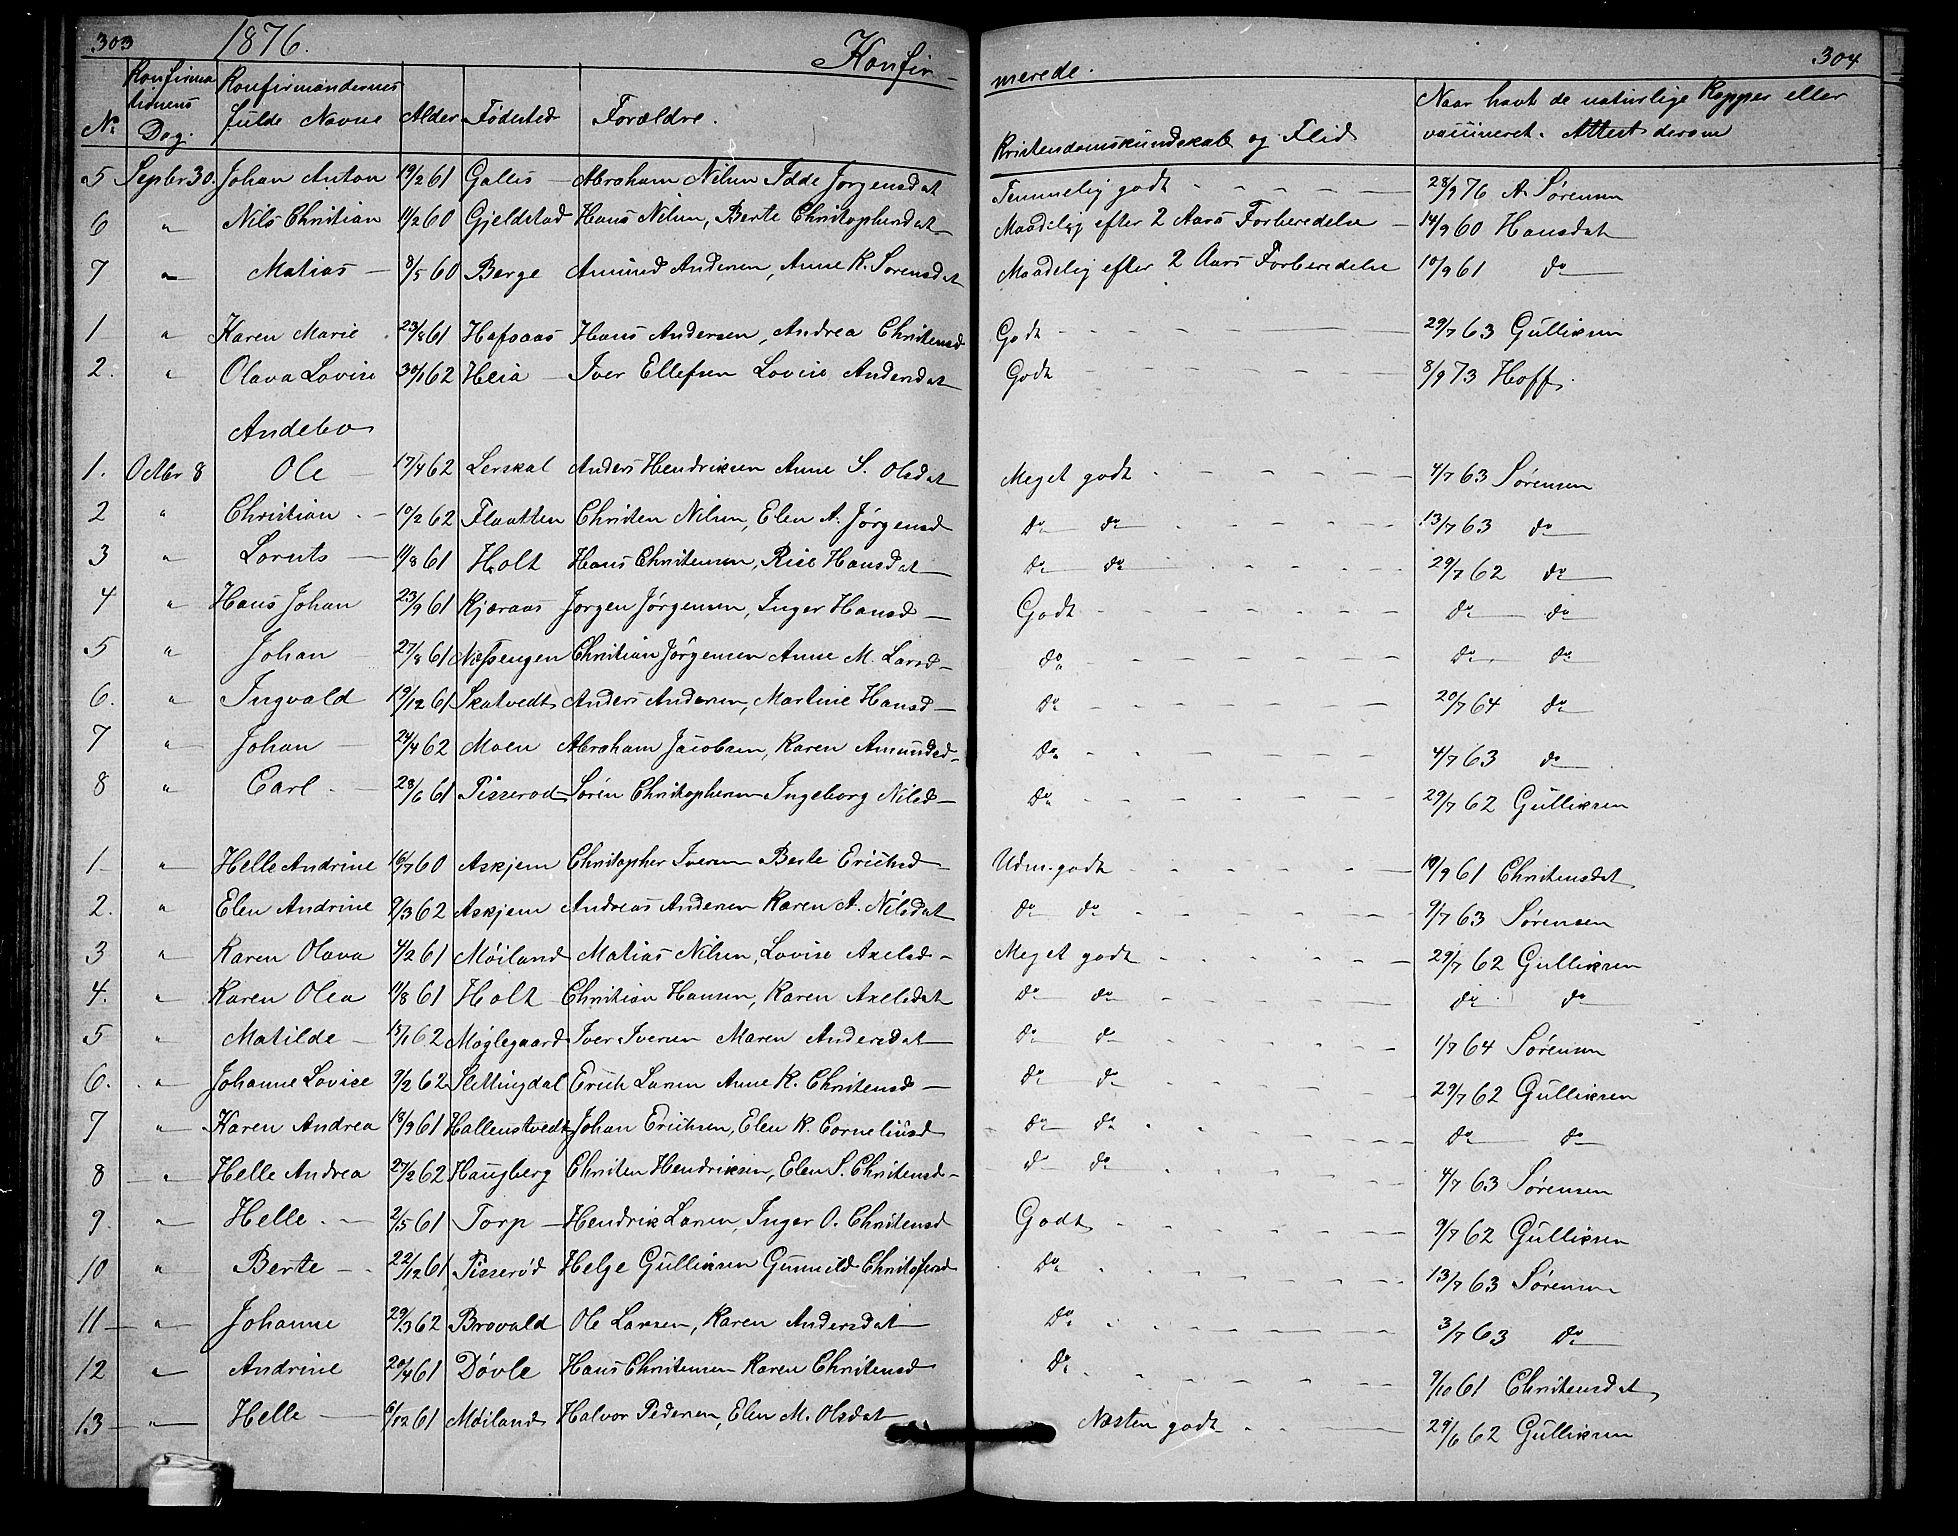 303 1876. Konfir- merede. 304
No Konfirmationens Dag. Konfirmandernes fulde Navne Alder Fødested Forældre. Kristendomskundskab og Flid Naar havt de naturlige Kopper eller vaccineret. Attest derom
5 Septbr 30. Johan Anton 19/2 61 Galles Abraham Nilsen Idde Jørgensdat Temmelig godt 28/9 76 A. Sørensen
6 " Nils Christian 11/2 60 Gjeldstad Hans Nilsen, Berte Christophersdat Maadelig efter 2 Aars Forberedelse 14/9 60 Hansdat
7 " Matias 8/5 60 Berge Amund Andersen, Anne K. Sørensdat Maadelig efter 2 Aars Forberedelse 10/9 61 do
1 " Karen Marie 23/8 61 Hafsaas Hans Andersen, Andrea Christensd Godt 29/7 63 Gulliksen
2. " Olava Lovise 30/1 62 Heia Iver Ellefsen Lovise Andersdat Godt 8/9 73 Hoff.
Andebo
1. Octbr 8 Ole 17/4 62 Lerskal Anders Hendriksen Anne S. Olsdat Meget godt 4/7 63 Sørensen
2 " Christian 10/2 62 Flaatten Christen Nilsen, Elen A. Jørgensd do do 13/7 63 do
3 " Lorents 11/8 61 Holt Hans Christensen, Risé Hansdat do do 29/7 62 do
4 " Hans Johan 23/9 61 Kjæraas Jørgen Jørgensen, Inger Hansd Godt do do
5 " Johan 27/8 61 Næssengen Christian Jørgensen Anne M. Larsd do do do
6. " Ingvald 19/12 61 Skatvedt Anders Andersen, Martine Hansd do 20/7 64 do
7 " Johan 24/4 62 Moen Abraham Jacobsen, Karen Amundsd do 4/7 63 do
8 " Carl 28/6 61 Pisserod Søren Christophersen Ingeborg Nilsd do 29/7 62 Gulliksen
1 " Helle Andrine 16/7 60 Askjem Christopher Iversen Berte Erichsd Udm. godt 18/9 61 Christensdat
2. " Elen Andrine 9/3 62 Askjem Andreas Andersen Karen A. Nilsdat do do 9/7 63 Sørensen
3 " Karen Olava 4/2 61 Møiland Matias Nilsen, Lovise Axelsd Meget godt 29/7 62 Gulliksen
4. " Karen Olea 11/8 61 Holt Christian Hansen, Karen Axelsdat do do do do
5 " Matilde 18/1 62 Møglegaard Iver Iversen Maren Andersdat do do 1/7 64 Sørensen
6. " Johanne Lovise 9/2 62 Slettingdal Erich Larsen Anne K. Christensd do do 29/7 62 Gulliksen
7 " Karen Andrea 18/9 61 Hallenstvedt Johan Erichsen, Elen K. Corneliusd do do do do
8 " Helle Andrea 27/2 62 Haugberg Christen Hendriksen, Elen S. Christensd do do 4/7 63 Sørensen
9. " Helle 2/5 61 Torp Hendrik Larsen, Inger O. Christensd Godt 9/7 62 Gulliksen
10 " Berte 22/12 61 Pisserød Helge Gulliksen Gunnild Christofersd do 13/7 63 Sørensen
11 " Johanne 29/3 62 Brovald Ole Larsen, Karen Andersdat do 3/7 63 do
12 " Andrine 20/4 61 Døvle Hans Christensen Karen Christensd do 9/10 61 Christensdat
13 " Helle 6/12 61 Møiland Halvor Pedersen, Elen M. Olsdat Næsten godt 29/6 62 Gulliksen